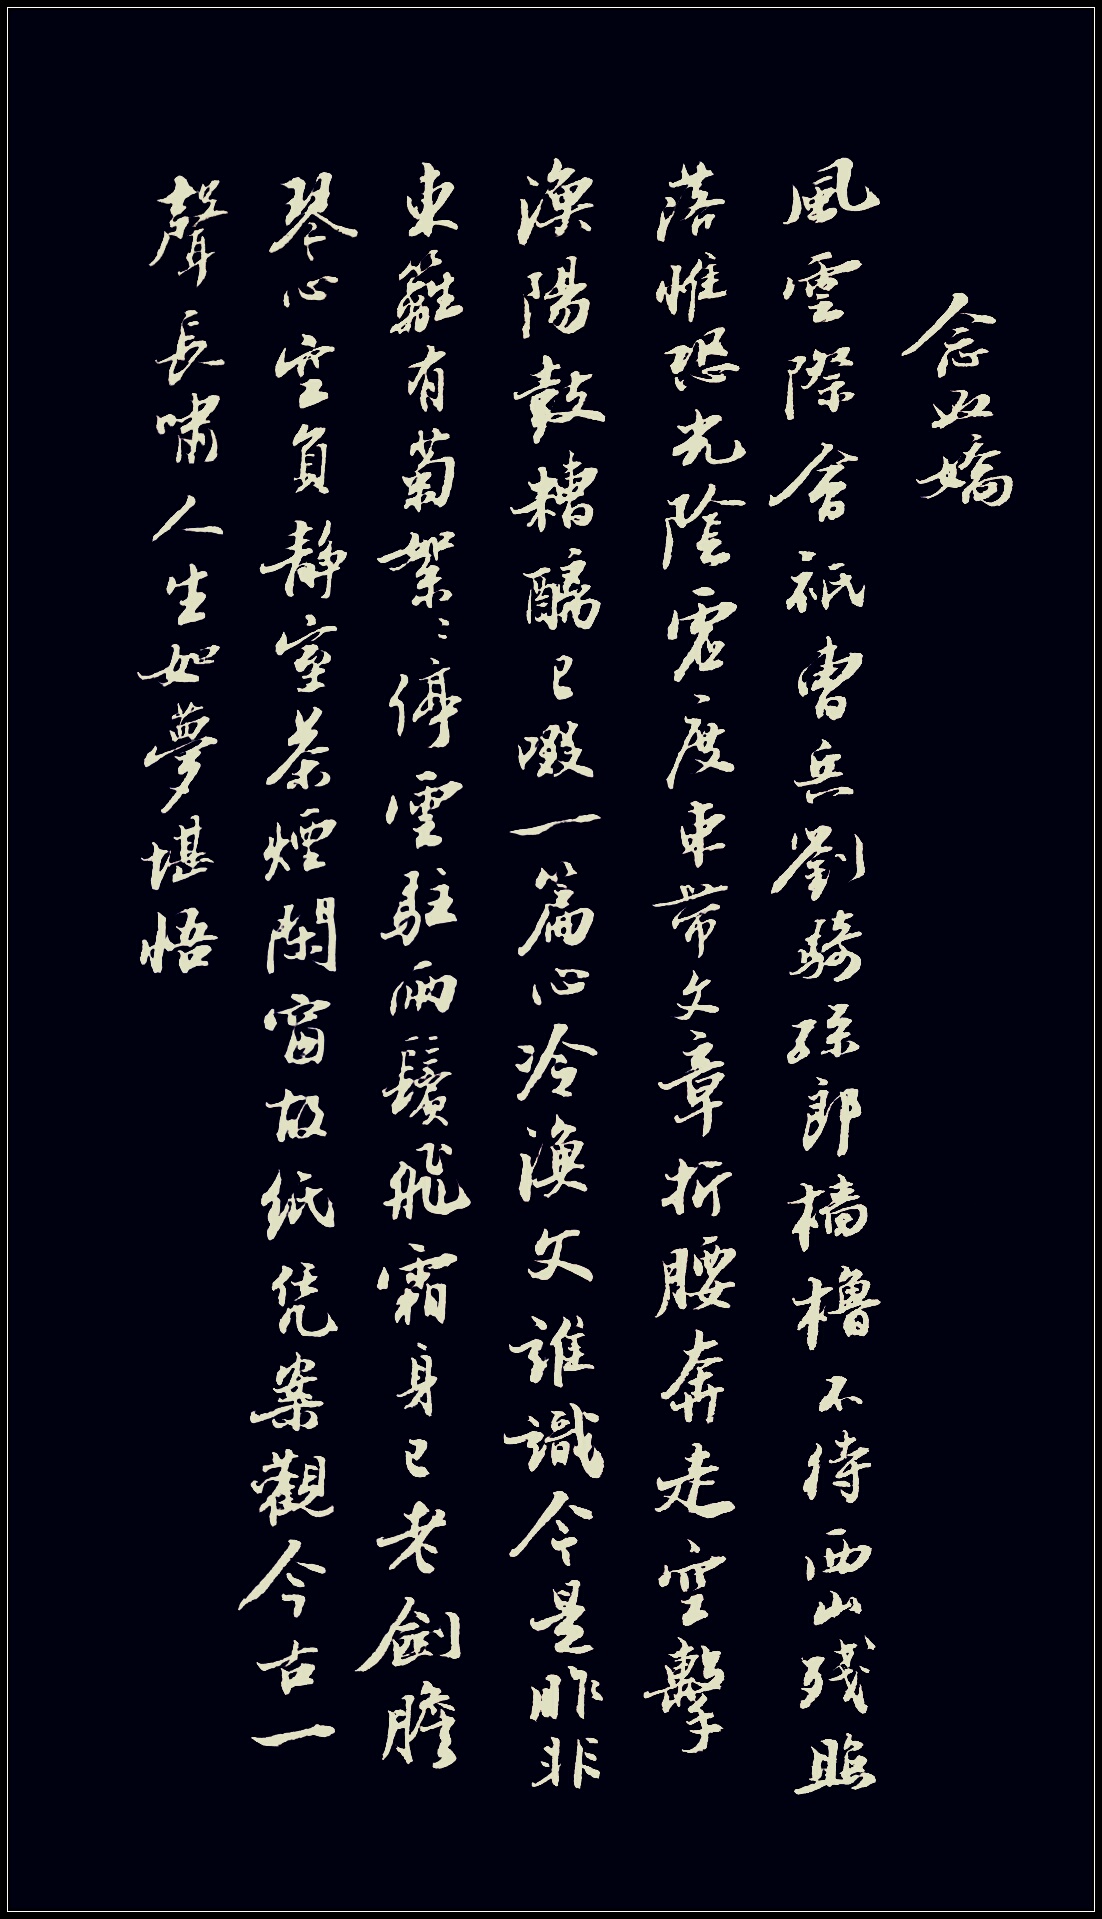 念奴嬌
風雲際會祇曹兵劉騎孫郎檣櫓不待西山殘照
落惟恐光陰虛度束帶文章折腰奔走空擊
漁陽鼓糟醨已啜一篇心冷漁父誰識今是昨非
東籬有菊絮〻停雲駐兩鬢飛霜身已老劍膽
琴心空負靜室茶煙閑窗故紙凭案觀今古一
聲長嘯人生如夢堪悟